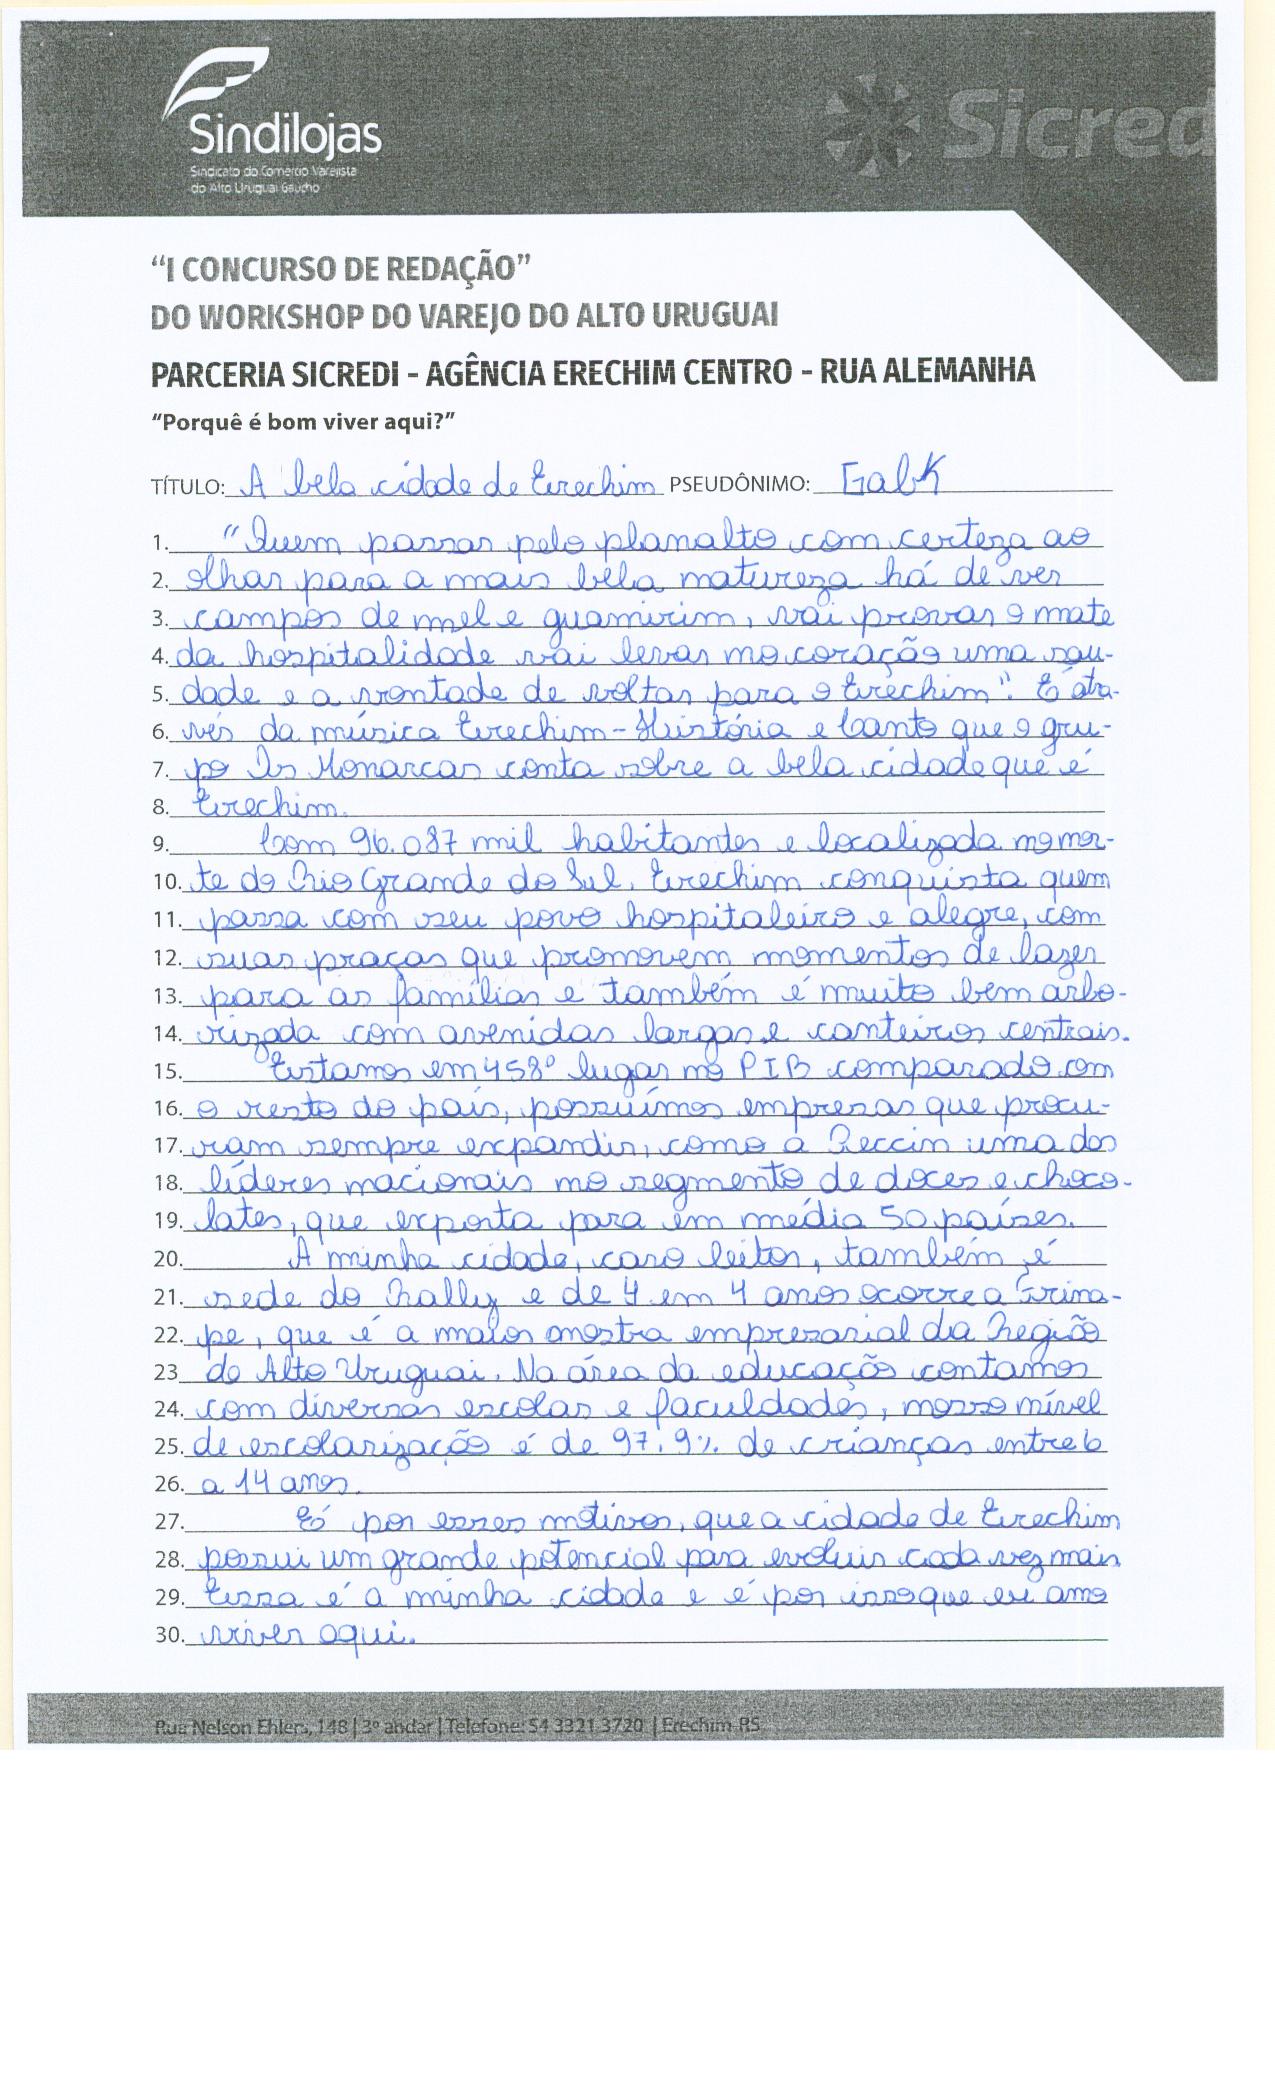 Sindilojas
Sindicato do Comércio Varejista
do Alto Uruguai Gaúcho
Sicred
“I CONCURSO DE REDAÇÃO”
DO WORKSHOP DO VAREJO DO ALTO URUGUAI
PARCERIA SICREDI - AGÊNCIA ERECHIM CENTRO - RUA ALEMANHA
“Porquê é bom viver aqui?”
TÍTULO: A bela cidade de Erechim PSEUDÔNIMO: GabK
1. “Quem passar pelo planalto com certeza ao
2. olhar para a mais bela natureza há de ver
3. campos de mel e guamirim, vai provar o mate
4. da hospitalidade vai levar no coração uma sau-
5. dade e a vontade de voltar para o Erechim”. É atra-
6. vés da música Erechim - História e Canto que o gru-
7. po Os Monarcas conta sobre a bela cidade que é
8. Erechim.
9. Com 96.087 mil habitantes e localizada no nor-
10. te do Rio Grande do Sul, Erechim conquista quem
11. passa com seu povo hospitaleiro e alegre, com
12. suas praças que promovem momentos de lazer
13. para as famílias e também é muito bem arbo-
14. rizada com avenidas largas e canteiros centrais.
15. Estamos em 458º lugar no PIB comparado com
16. o resto do país, possuímos empresas que procu-
17. ram sempre expandir, como a Peccin uma dos
18. líderes nacionais no segmento de doces e choco-
19. lates, que exporta para em média 50 países.
20. A minha cidade, caro leitor, também é
21. sede do Rally e de 4 em 4 anos ocorre a Frina-
22. pe, que é a maior mostra empresarial da Região
23. do Alto Uruguai. Na área da educação contamos
24. com diversas escolas e faculdades, nosso nível
25. de escolarização é de 97,9% de crianças entre 6
26. a 14 anos.
27. É por esses motivos, que a cidade de Erechim
28. possui um grande potencial para evoluir cada vez mais
29. Essa é a minha cidade e é por isso que eu amo
30. viver aqui.
Rua Nelson Ehlers, 148 | 3º andar | Telefone: 54 3321 3720 | Erechim-RS